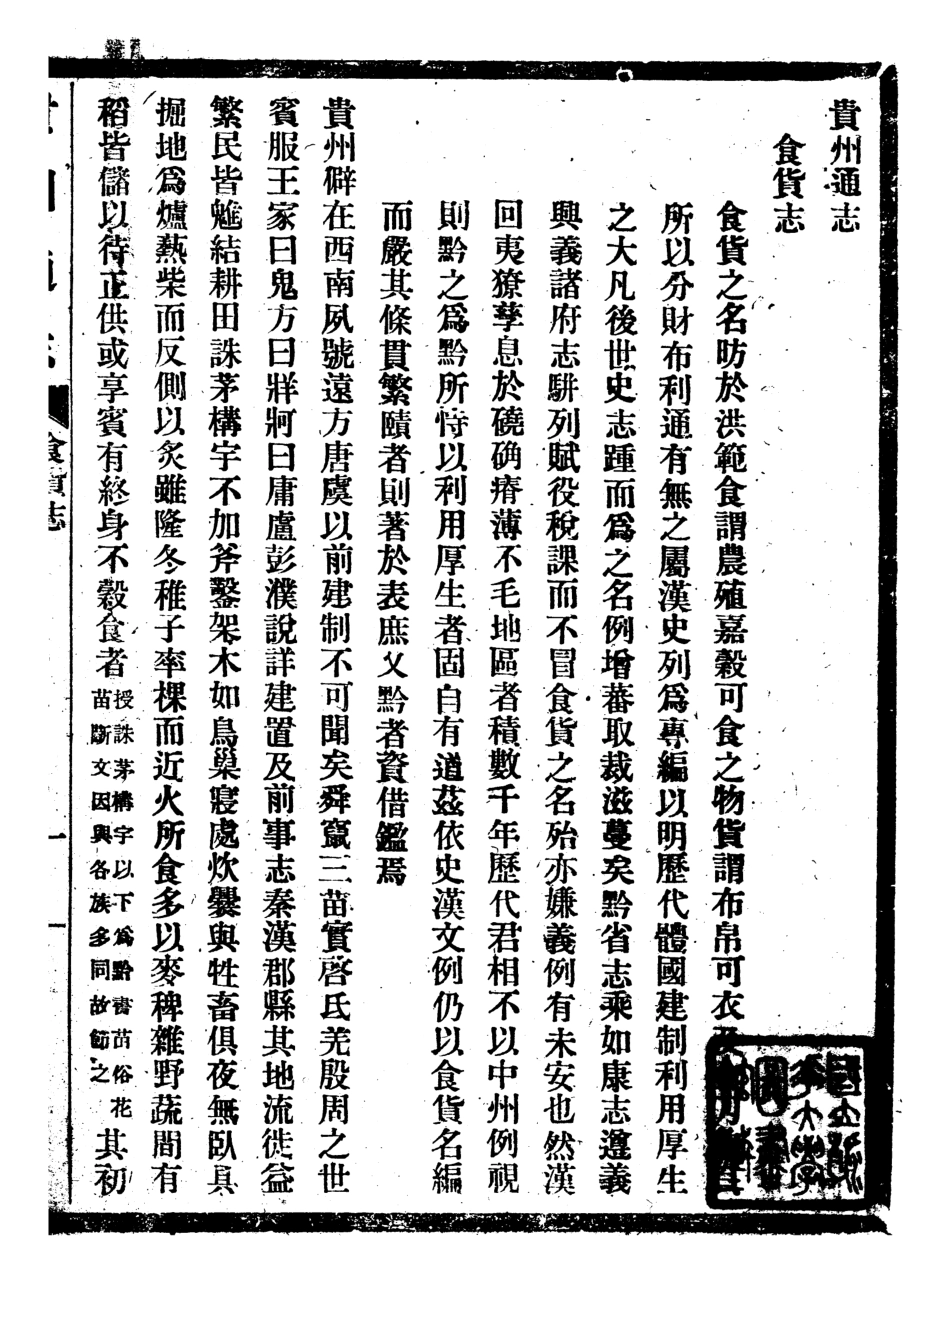 貴州通志
食貨志
食貨之名昉於洪範食謂農殖嘉穀可食之物貨謂布帛可衣及
所以分財布利通有無之屬漢史列爲專編以明歷代體國建制利用厚生
之大凡後世史志踵而爲之名例增蕃取裁滋蔓矣黔省志乘如康志遵義
興義諸府志駢列賦役稅課而不冒食貨之名殆亦嫌義例有未安也然漢
回夷獠孳息於磽确瘠薄不毛地區者積數千年歷代君相不以中州例視
則黔之爲黔所恃以利用厚生者固自有道茲依史漢文例仍以食貨名編
而嚴其條貫繁賾者則著於表庶父黔者資借鑑焉
貴州僻在西南夙號遠方唐虞以前建制不可聞矣舜竄三苗實啓氐羌殷周之世
賓服王家曰鬼方曰牂牁曰庸盧彭濮說詳建置及前事志秦漢郡縣其地流徙益
繁民皆魋結耕田誅茅構宇不加斧鑿架木如鳥巢寢處炊爨與牲畜俱夜無臥具
掘地爲爐爇柴而反側以炙雖隆冬稚子率棵而近火所食多以麥稗雜野蔬間有
稻皆儲以待正供或享賓有終身不穀食者
授誅茅構宇以下爲黔書苗俗花
苗斷文因與各族多同故節之
其初
食貨志
一